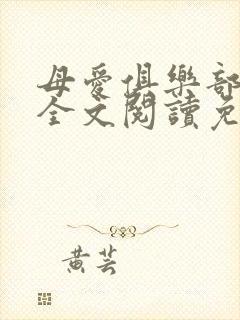 母愛俱樂部
全文閱讀免
黃芸